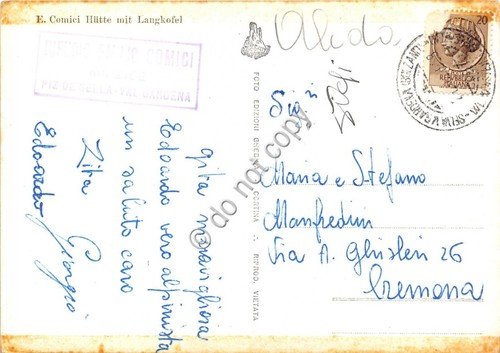 E. Comici Hütte mit Langkofel
RIFUGIO EMILIO COMICI
PIZ DE SELLA - VAL GARDENA
gita meravigliosa
Edoardo vero alpinista
un saluto caro
Zita
Giorgio
Edoardo
FOTO EDIZIONI GHEDINA CORTINA - RIPROD. VIETATA
do not copy
Alida
20
SELVA
Sig.ri
Maria e Stefano
Manfredini
Via A. Ghisleri 26
Cremona